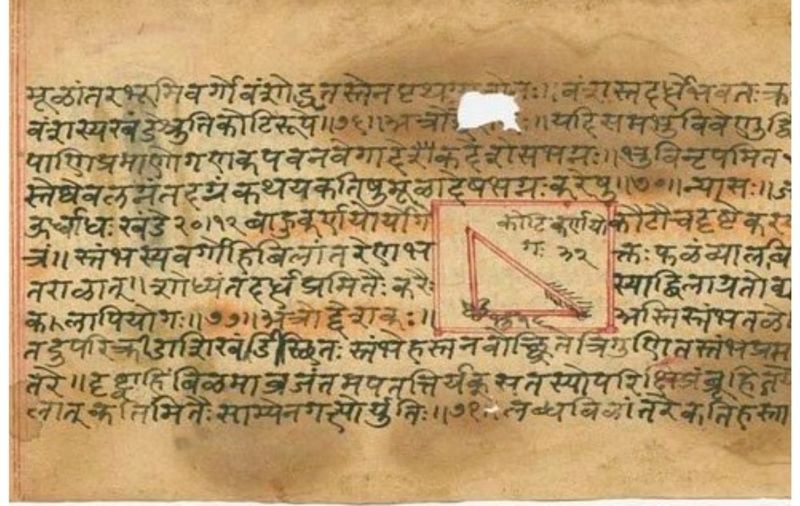 मूळांतरभूमिवर्गोवंशोद्धृतस्तेनपृथग नः॥वंशस्तदर्धेभवतःक्र
वंशस्यखंडेश्रुतिकोटिरूपे॥७६॥अत्रो ॥यदिसमभुविवेणुर्द्वि
पाणिप्रमाणोगणकपवनवेगादेकदेशेसभग्नः॥भुविनृपमित
स्तेष्वेवलग्नंतदग्रंकथयकतिषुमूळादेषभग्नःकरेषु॥७७॥न्यासः॥
ऊर्ध्वाधःखंडे२०।१२बाहुकर्णयोर्योगे कोटिकर्णयो कोटौचदृष्टेकर
गः ३२
त्रं॥स्तंभस्यवर्गोहिबिलांतरेणभ क्तःफळंव्यालबि
तराळात्॥शोध्यंतदर्धप्रमितैःकरैः स्याद्बिलाग्रतोव्य
कलापियोगः॥७७॥अत्रोद्देशकः॥ अस्तिस्तंभतळे
तदुपरिक्रीडाशिखंडीस्थितःस्तंभेहस्तनवोच्छ्रितेत्रिगुणितस्तंभप्रमा
तरे॥दृष्ट्वाहिंबिळमाव्रजंतमपतत्तिर्यक्सतस्योपरिक्षिप्रंब्रूहितयो
लात्कतिमितैःसाम्येनगत्योर्युतिः॥७९॥लब्धबिळांतरेकतिहस्ता